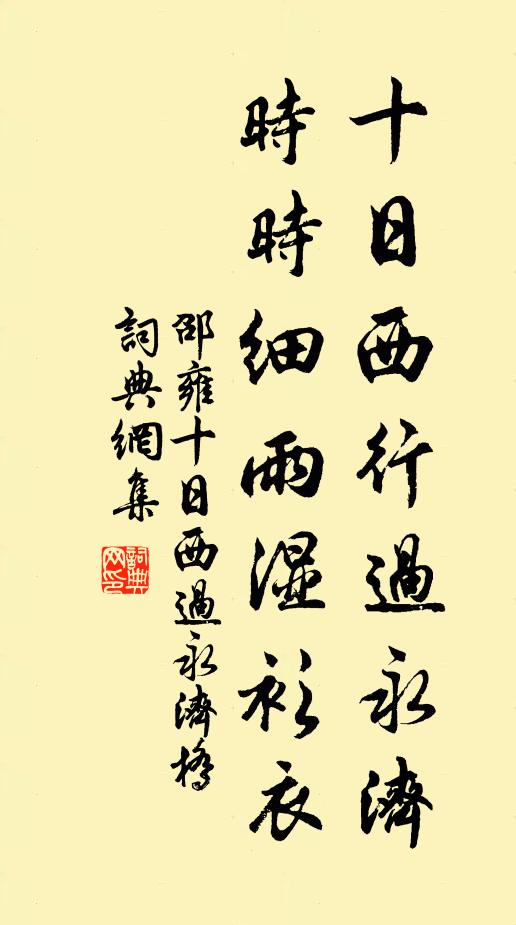 十日西行過永濟
時時細雨湿衫衣
邵雍十日西過永濟橋
詞典網集
詞典网印